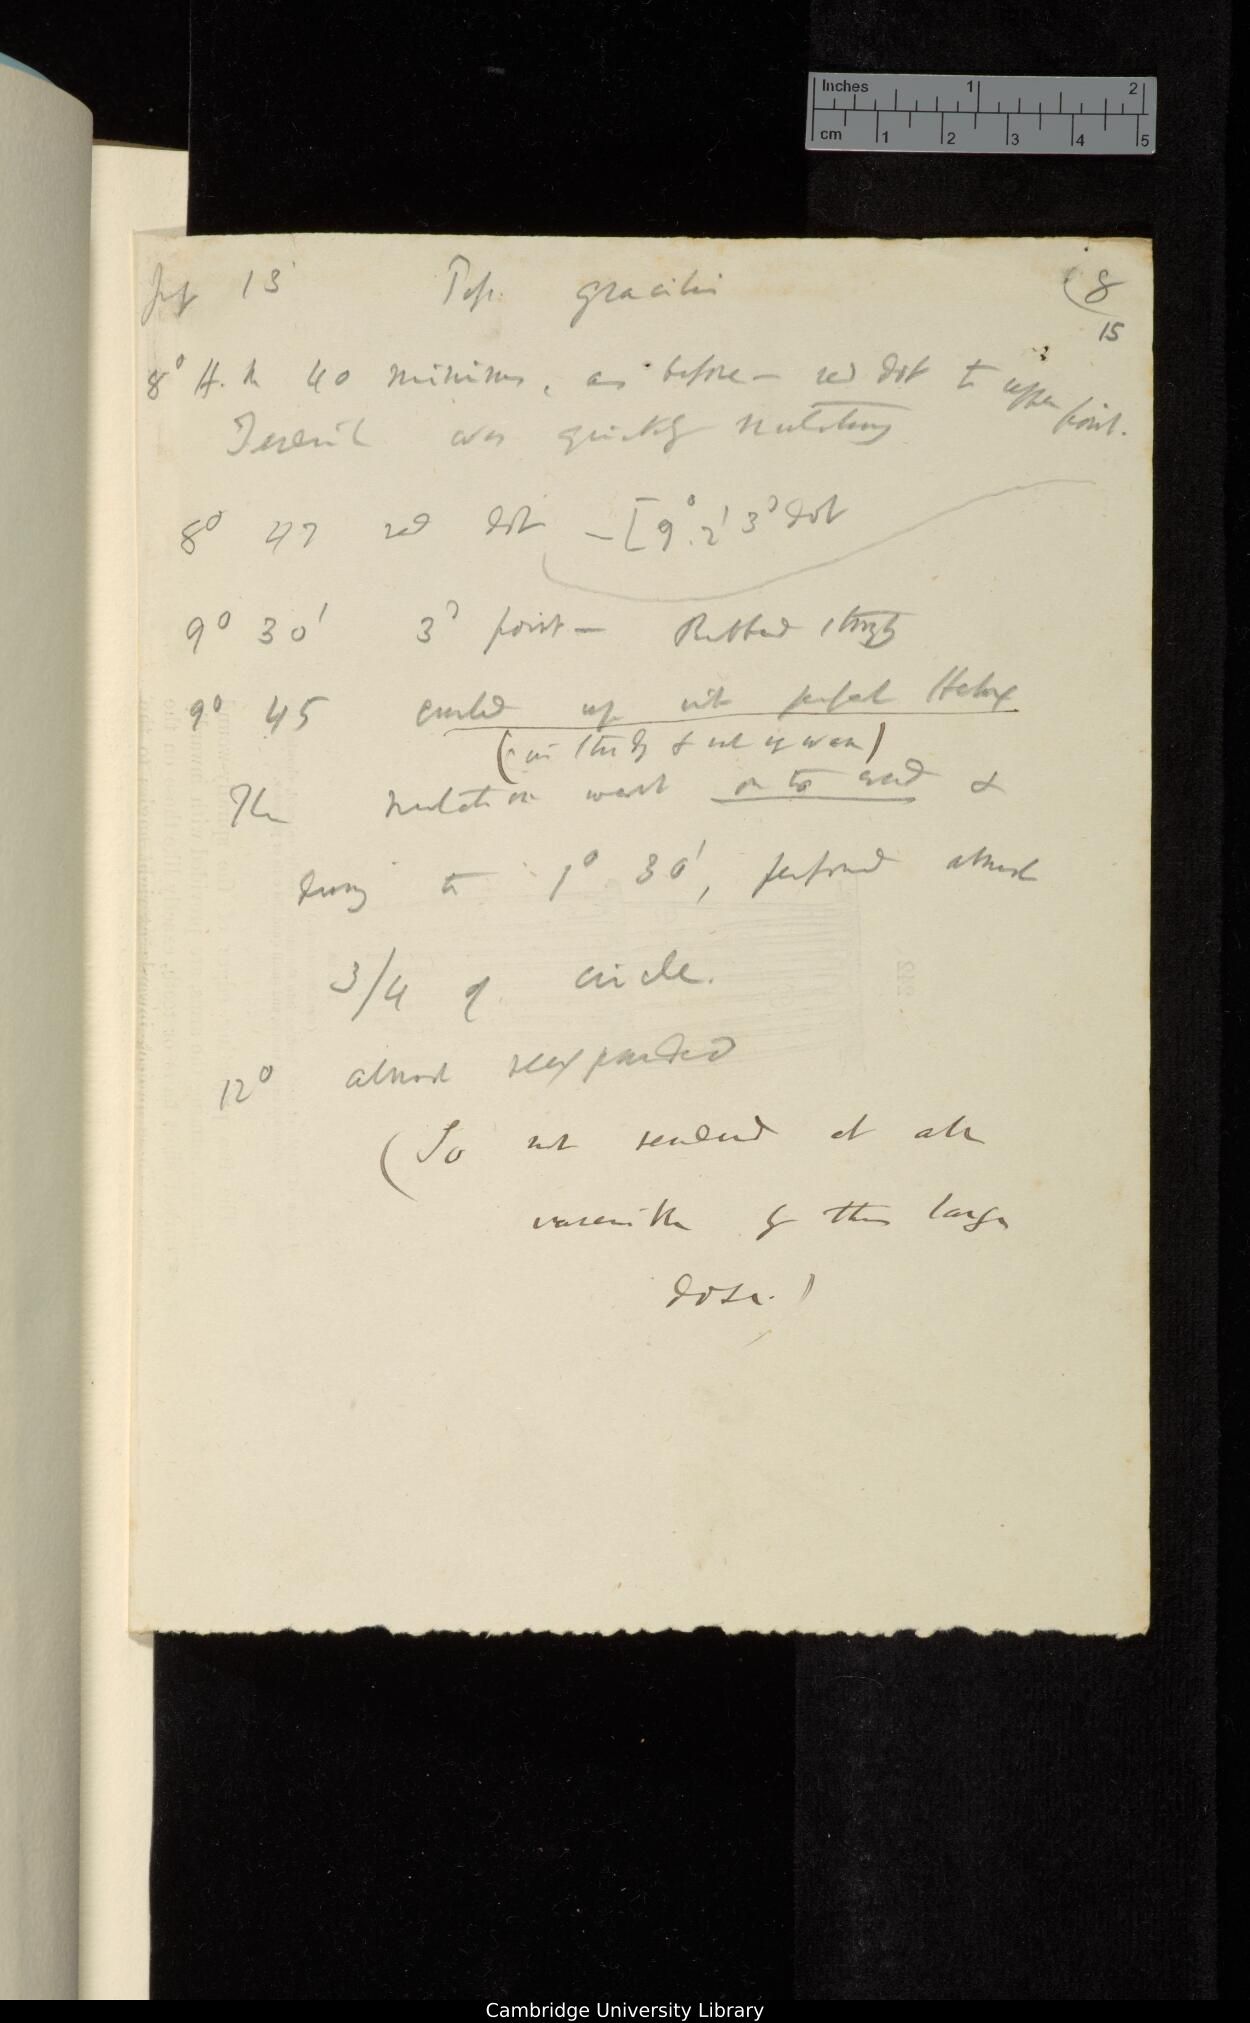 Inches 1 2
cm 1 2 3 4 5
13 Pass. gracilis (8
15
8° H. h 40 minims, as before — red dot to upper point.
Tendril was quickly nutating
8° 47 red dot — [9°.2' 3d dot
9° 30' 3d point — Rubbed strongly
9° 45 curled up into perfect Helix
(in 1/2 &
The nutation went on to end &
during to 1° 30', performed almost
3/4 of circle.
12° almost reexpanded
(So not rendered at all
insensible by this large
dose.)
Cambridge University Library